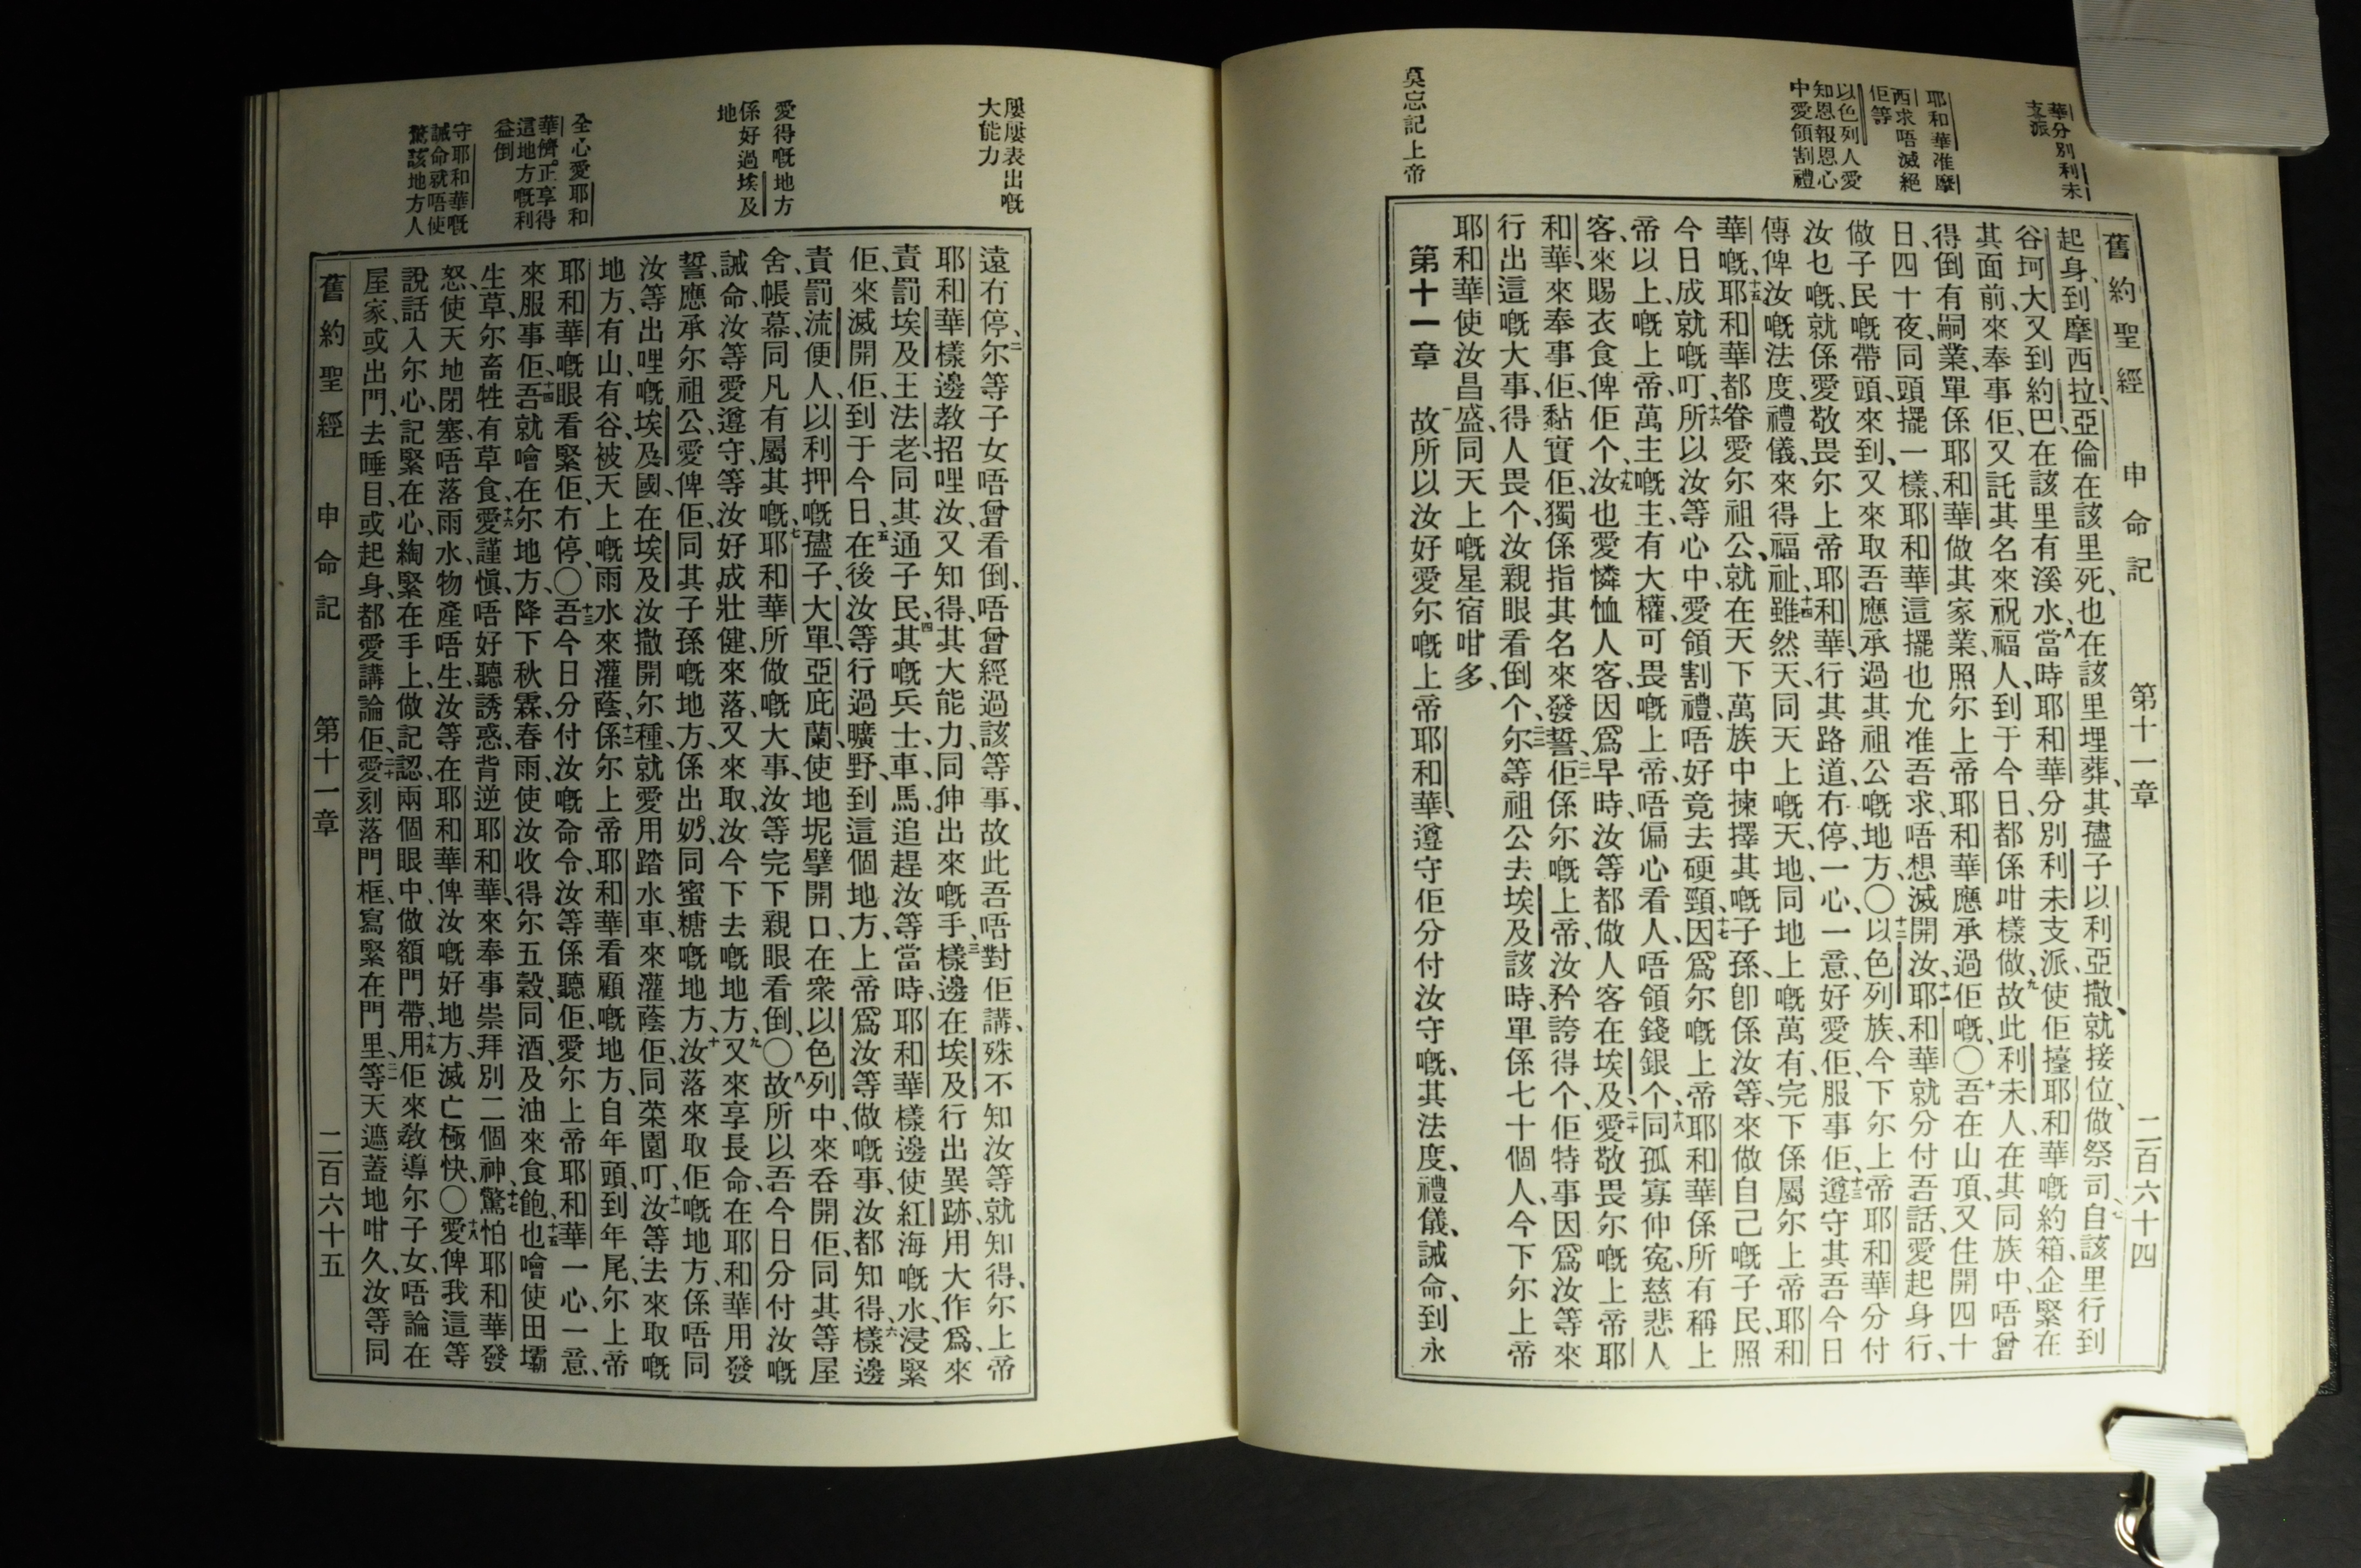 舊約聖經 申命記 第十一章 二百六十四
華分別利未
支派
耶和華准摩
西求唔滅絕
佢等
以色列人愛
知恩報恩心
中愛領割禮
莫忘記上帝
起身、到摩西拉、亞倫在該里死、也在該里埋葬、其𡥧子以利亞撒、就接位、做祭司、七自該里行到
谷坷大、又到約巴、在該里有溪水、八當時、耶和華分別利未支派、使佢擡耶和華嘅約箱、企緊在
其面前、來奉事佢、又託其名來祝福人、到于今日、都係咁樣做、九故此利未人在其同族中、唔曾
得倒有嗣業、單係耶和華做其家業、照尔上帝耶和華應承過佢嘅、〇十吾在山頂、又住開四十
日、四十夜、同頭擺一樣、耶和華這擺也允准吾求、唔想滅開汝、十一耶和華就分付吾話、愛起身行、
做子民嘅帶頭、來到、又來取吾應承過其祖公嘅地方、〇十二以色列族、今下尔上帝耶和華分付
汝乜嘅、就係愛敬畏尔上帝耶和華、行其路道、冇停、一心、一意、好愛佢、服事佢、十三遵守其吾今日
傳俾汝嘅法度、禮儀、來得福祉、十四雖然天、同天上嘅天、地、同地上嘅萬有、完下係屬尔上帝耶和
華嘅、十五耶和華都眷愛尔祖公、就在天下萬族中揀擇其嘅子孫、即係汝等、來做自己嘅子民、照
今日成就嘅叮、十六所以汝等心中、愛領割禮、唔好竟去硬頸、十七因爲尔嘅上帝耶和華係所有稱上
帝以上、嘅上帝、萬主嘅主、有大權、可畏嘅上帝、唔偏心看人、唔領錢銀个、十八同孤寡伸冤、慈悲人
客、來賜衣食俾佢个、十九汝也愛憐恤人客、因爲早時、汝等都做人客在埃及、二十愛敬畏尔嘅上帝耶
和華、來奉事佢、黏實佢、獨係指其名來發誓、二一佢係尔嘅上帝、汝矜誇得个、佢特事因爲汝等來
行出這嘅大事、得人畏个、汝親眼看倒个、二二尔等祖公去埃及該時、單係七十個人、今下尔上帝
耶和華使汝昌盛、同天上嘅星宿咁多、
第十一章 一故所以汝好愛尔嘅上帝耶和華、遵守佢分付汝守嘅、其法度、禮儀、誡命、到永
屢屢表出嘅
大能力
愛得嘅地方
係好過埃及
地
全心愛耶和
華儕正享得
這地方嘅利
益倒
守耶和華嘅
誡命就唔使
驚該地方人
遠冇停、二尔等子女唔曾看倒、唔曾經過該等事、故此吾唔對佢講、殊不知汝等就知得、尔上帝
耶和華樣邊教招哩汝、又知得其大能力、同伸出來嘅手、三樣邊在埃及行出異跡、用大作爲、來
責罰埃及王法老、同其通子民、四其嘅兵士、車、馬、追趕汝等、當時、耶和華樣邊使紅海嘅水、浸緊
佢、來滅開佢、到于今日、五在後汝等行過曠野、到這個地方、上帝爲汝等做嘅事、汝都知得、六樣邊
責罰流便人、以利押嘅𡥧子、大單、亞庇蘭、使地坭擘開口、在衆以色列中、來吞開佢、同其等屋
舍、帳幕、同凡有屬其嘅、七耶和華所做嘅大事、汝等完下親眼看倒、〇八故所以吾今日分付汝嘅
誡命、汝等愛遵守、等汝好成壯健、來落、又來取、汝今下去嘅地方、九又來享長命、在耶和華用發
誓應承尔祖公、愛俾佢、同其子孫嘅地方、係出奶、同蜜糖嘅地方、十汝落來取佢嘅地方、係唔同
汝等出哩嘅埃及國、在埃及汝撒開尔種、就愛用踏水車、來灌蔭佢、同菜園叮、十一汝等去來取嘅
地方、有山、有谷、被天上嘅雨水來灌蔭、十二係尔上帝耶和華看顧嘅地方、自年頭、到年尾、尔上帝
耶和華嘅眼看緊佢、冇停、〇十三吾今日分付汝嘅命令、汝等係聽佢、愛尔上帝耶和華、一心、一意、
來服事佢、十四吾就噲在尔地方、降下秋霖、春雨、使汝收得尔五穀、同酒、及油來食飽、十五也噲使田壩
生草、尔畜牲有草食、十六愛謹愼、唔好聽誘惑、背逆耶和華、來奉事崇拜別二個神、十七驚怕耶和華發
怒、使天地閉塞、唔落雨水、物產唔生、汝等在耶和華俾汝嘅好地方、滅亡極快、〇十八愛俾我這等
說話、入尔心、記緊在心、綯緊在手上、做記認、兩個眼中、做額門帶、十九用佢來敎導尔子女、唔論在
屋家、或出門、去睡目、或起身、都愛講論佢、二十愛刻落門框、寫緊在門里、二一等天遮蓋地咁久、汝等同
舊約聖經 申命記 第十一章 二百六十五